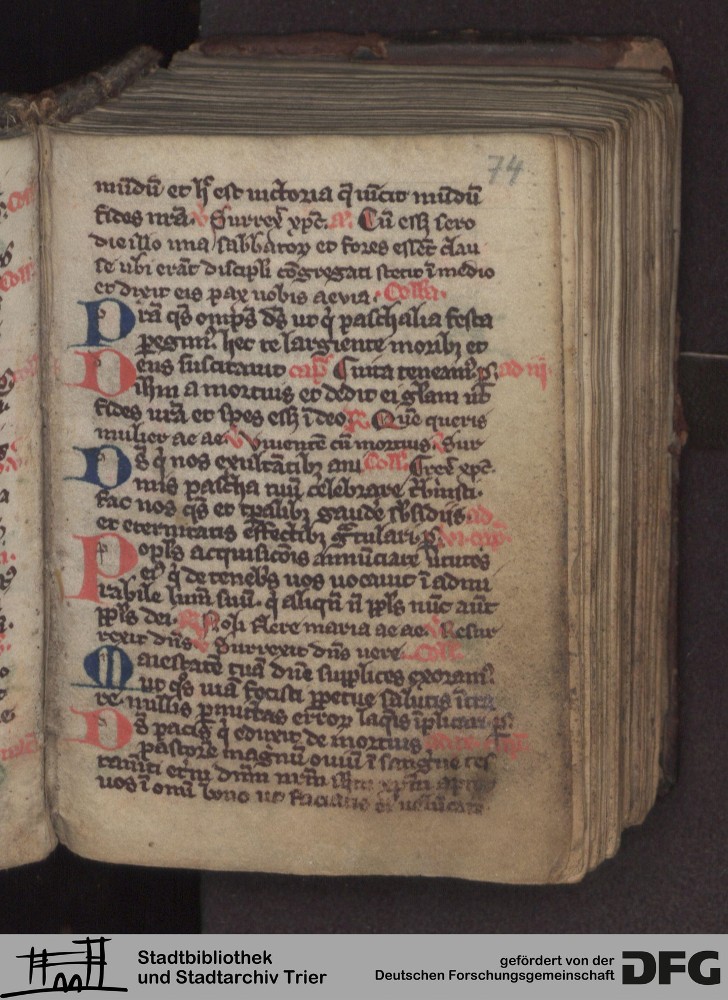 74
mūdū et h̄ est victoria q̄ uīcit mūdū
fides nr̄a. V Surrex̄ xpc̄. a. Cū eēt sero
die illo una sabbatoꝝ et fores essēt clau
se ubi erāt discipli cōgregati stetit ī medio
et dixit eis pax uobis aevia. Coll̄a.
Pr̄a q̄s omps̄ ds̄ ut q̄ paschalia festa
ꝑegimꝰ. hec te largiente moribꝫ et
Deus suscitauit cap̄. uita teneamꝰ. p. ad iij.
ih̄m a mortuis et dedit ei gl̄am ut
fides ur̄a et spes eēt ī deo. R Que queris
mulier ae ae. V Viuentē cū mortuis. V Sur
Ds̄ q̄ nos exultātibꝫ ani Coll. rex̄ xpc̄.
mis pascha tuū celebrare t̄buisti.
fac nos q̄s et tp̄alibꝫ gaude sb̄sidijs. ad
et eternitatis effectibꝫ gr̄tulari. p.
Popl̄s acquisicōis annūciate ūtutes
eiꝰ q̄ de tenebs̄ uos uocauit ī admi
rabile lum̄ suū. q̄ aliqn̄ n̄ ppl̄s nūc aūt
ppl̄s dei. R Noli flere maria ae ae. V Resur
rexit dn̄s V Surrexit dn̄s uere. Coll.
Maiestatē tuā dn̄e supplices exoramꝰ
ut q̄s uiā fecisti ꝑpetue salutis ītra
re. nullis ꝑmittas erroꝝ laqīs īplicari. p.
Ds̄ pacis q̄ eduxit de mortuis
pastorē magnū ouiū ī sangne tes
tam̄ti et̄ni dn̄m nr̄m ih̄m xp̄m aptet
uos ī om̄i bono ut faciatis
Stadtbibliothek
und Stadtarchiv Trier
gefördert von der
Deutschen Forschungsgemeinschaft
DFG